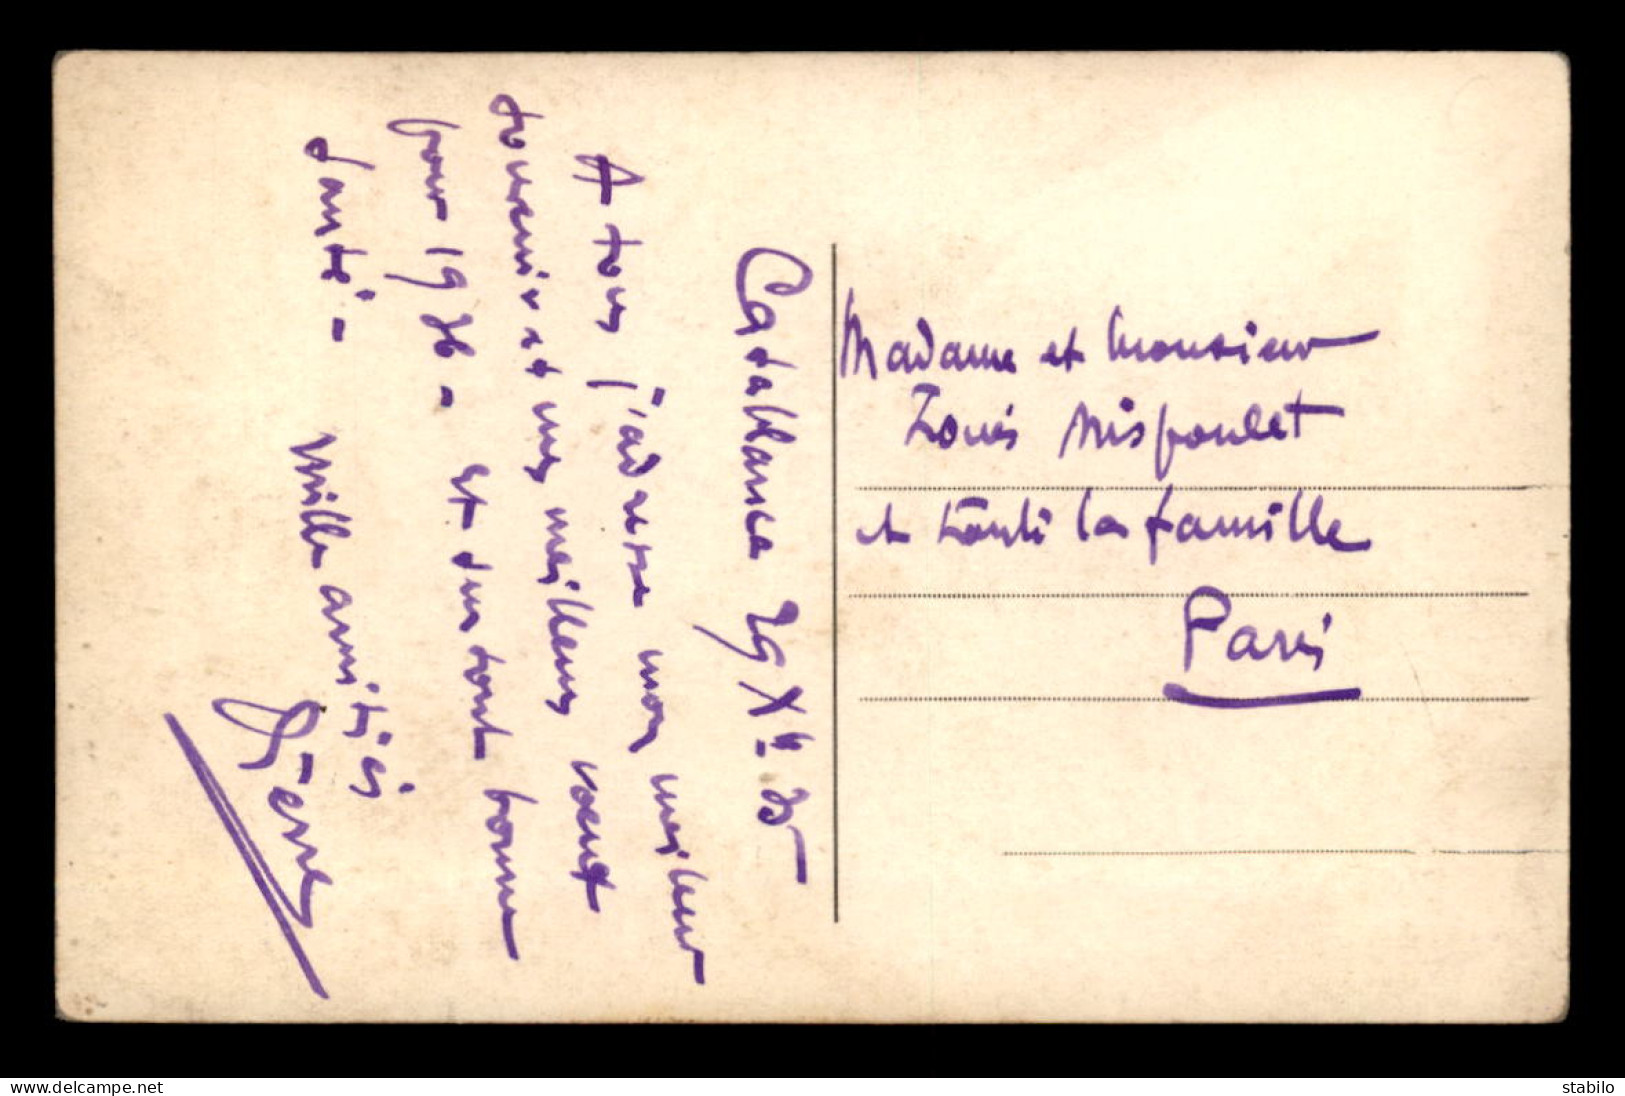 Casablanca 29 Xbre 35
A tous j'adresse mon meilleur
souvenir et mes meilleurs voeux
pour 1936 - et surtout bonne
santé - mille amitiés
Madame et Monsieur
Louis Nispoulet
et toute la famille
Paris
www.delcampe.net
stabilo